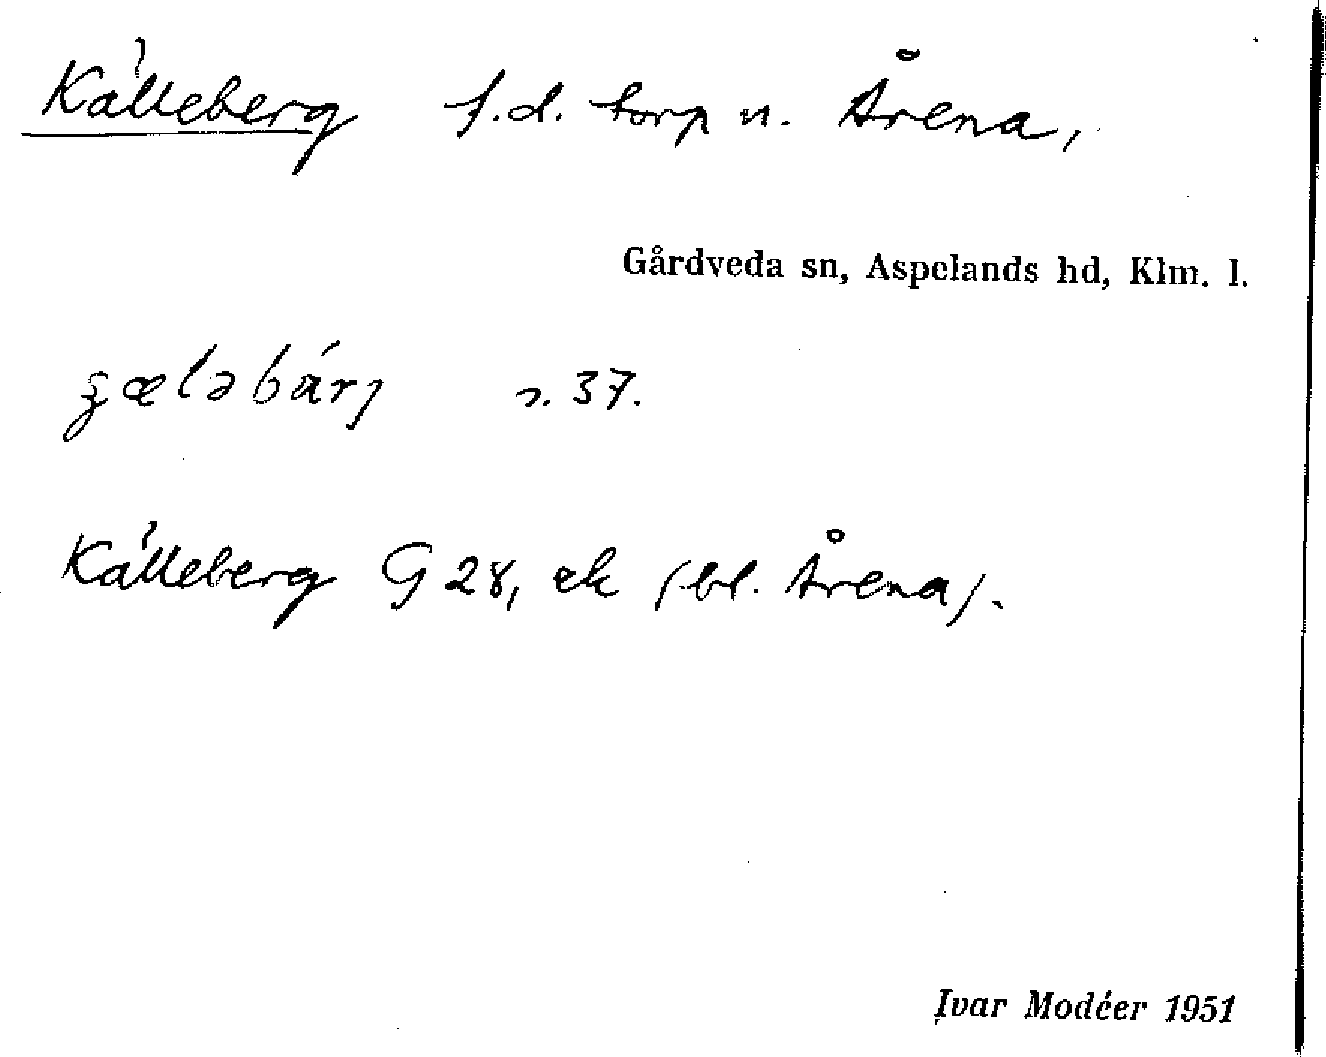 Källeberg f.d. torp u. Årena,
Gårdveda sn, Aspelands hd, Klm. l.
s. 37.
Källeberg G 28, ek (bl. Årena).
Ivar Modéer 1951